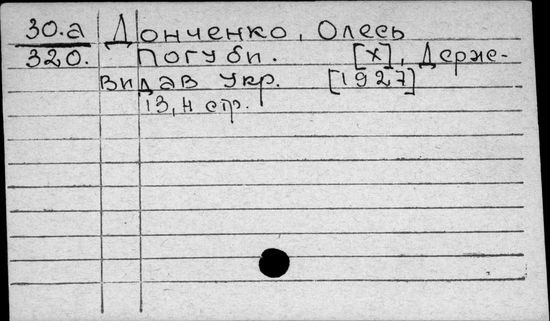 30.а Донченко, Олесь
320. Погуби. [Х], Держ-
видав Укр. [1927]
13, н стр.